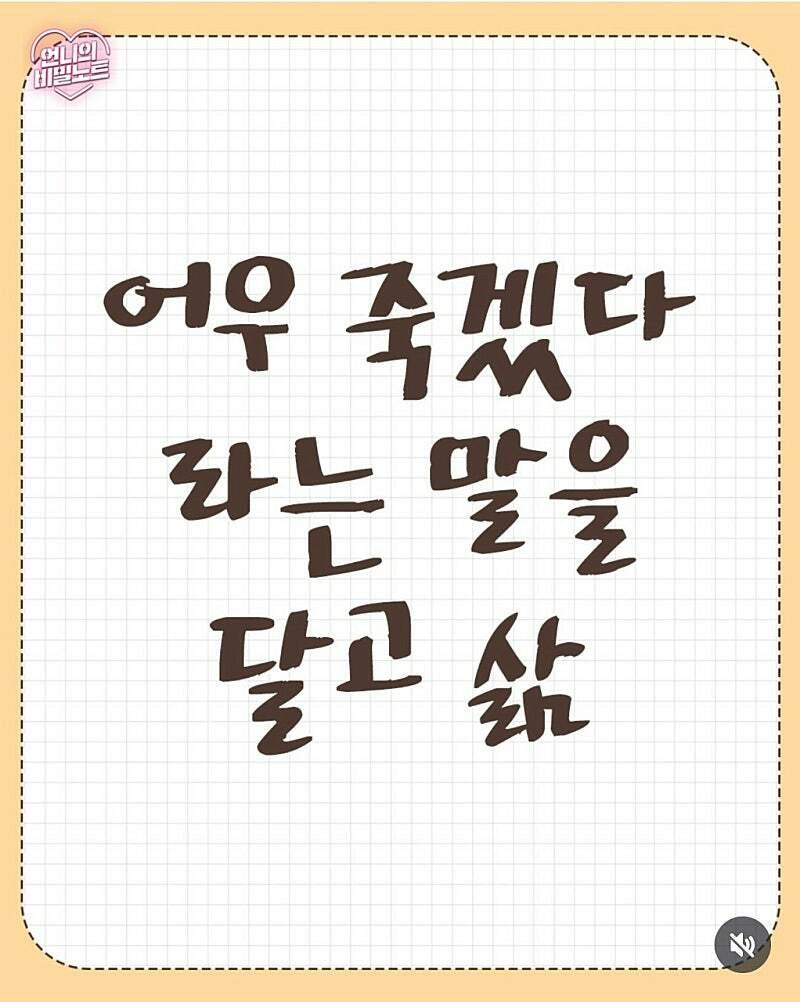 언니의
비밀노트
어우 죽겠다
라는 말을
달고 삶